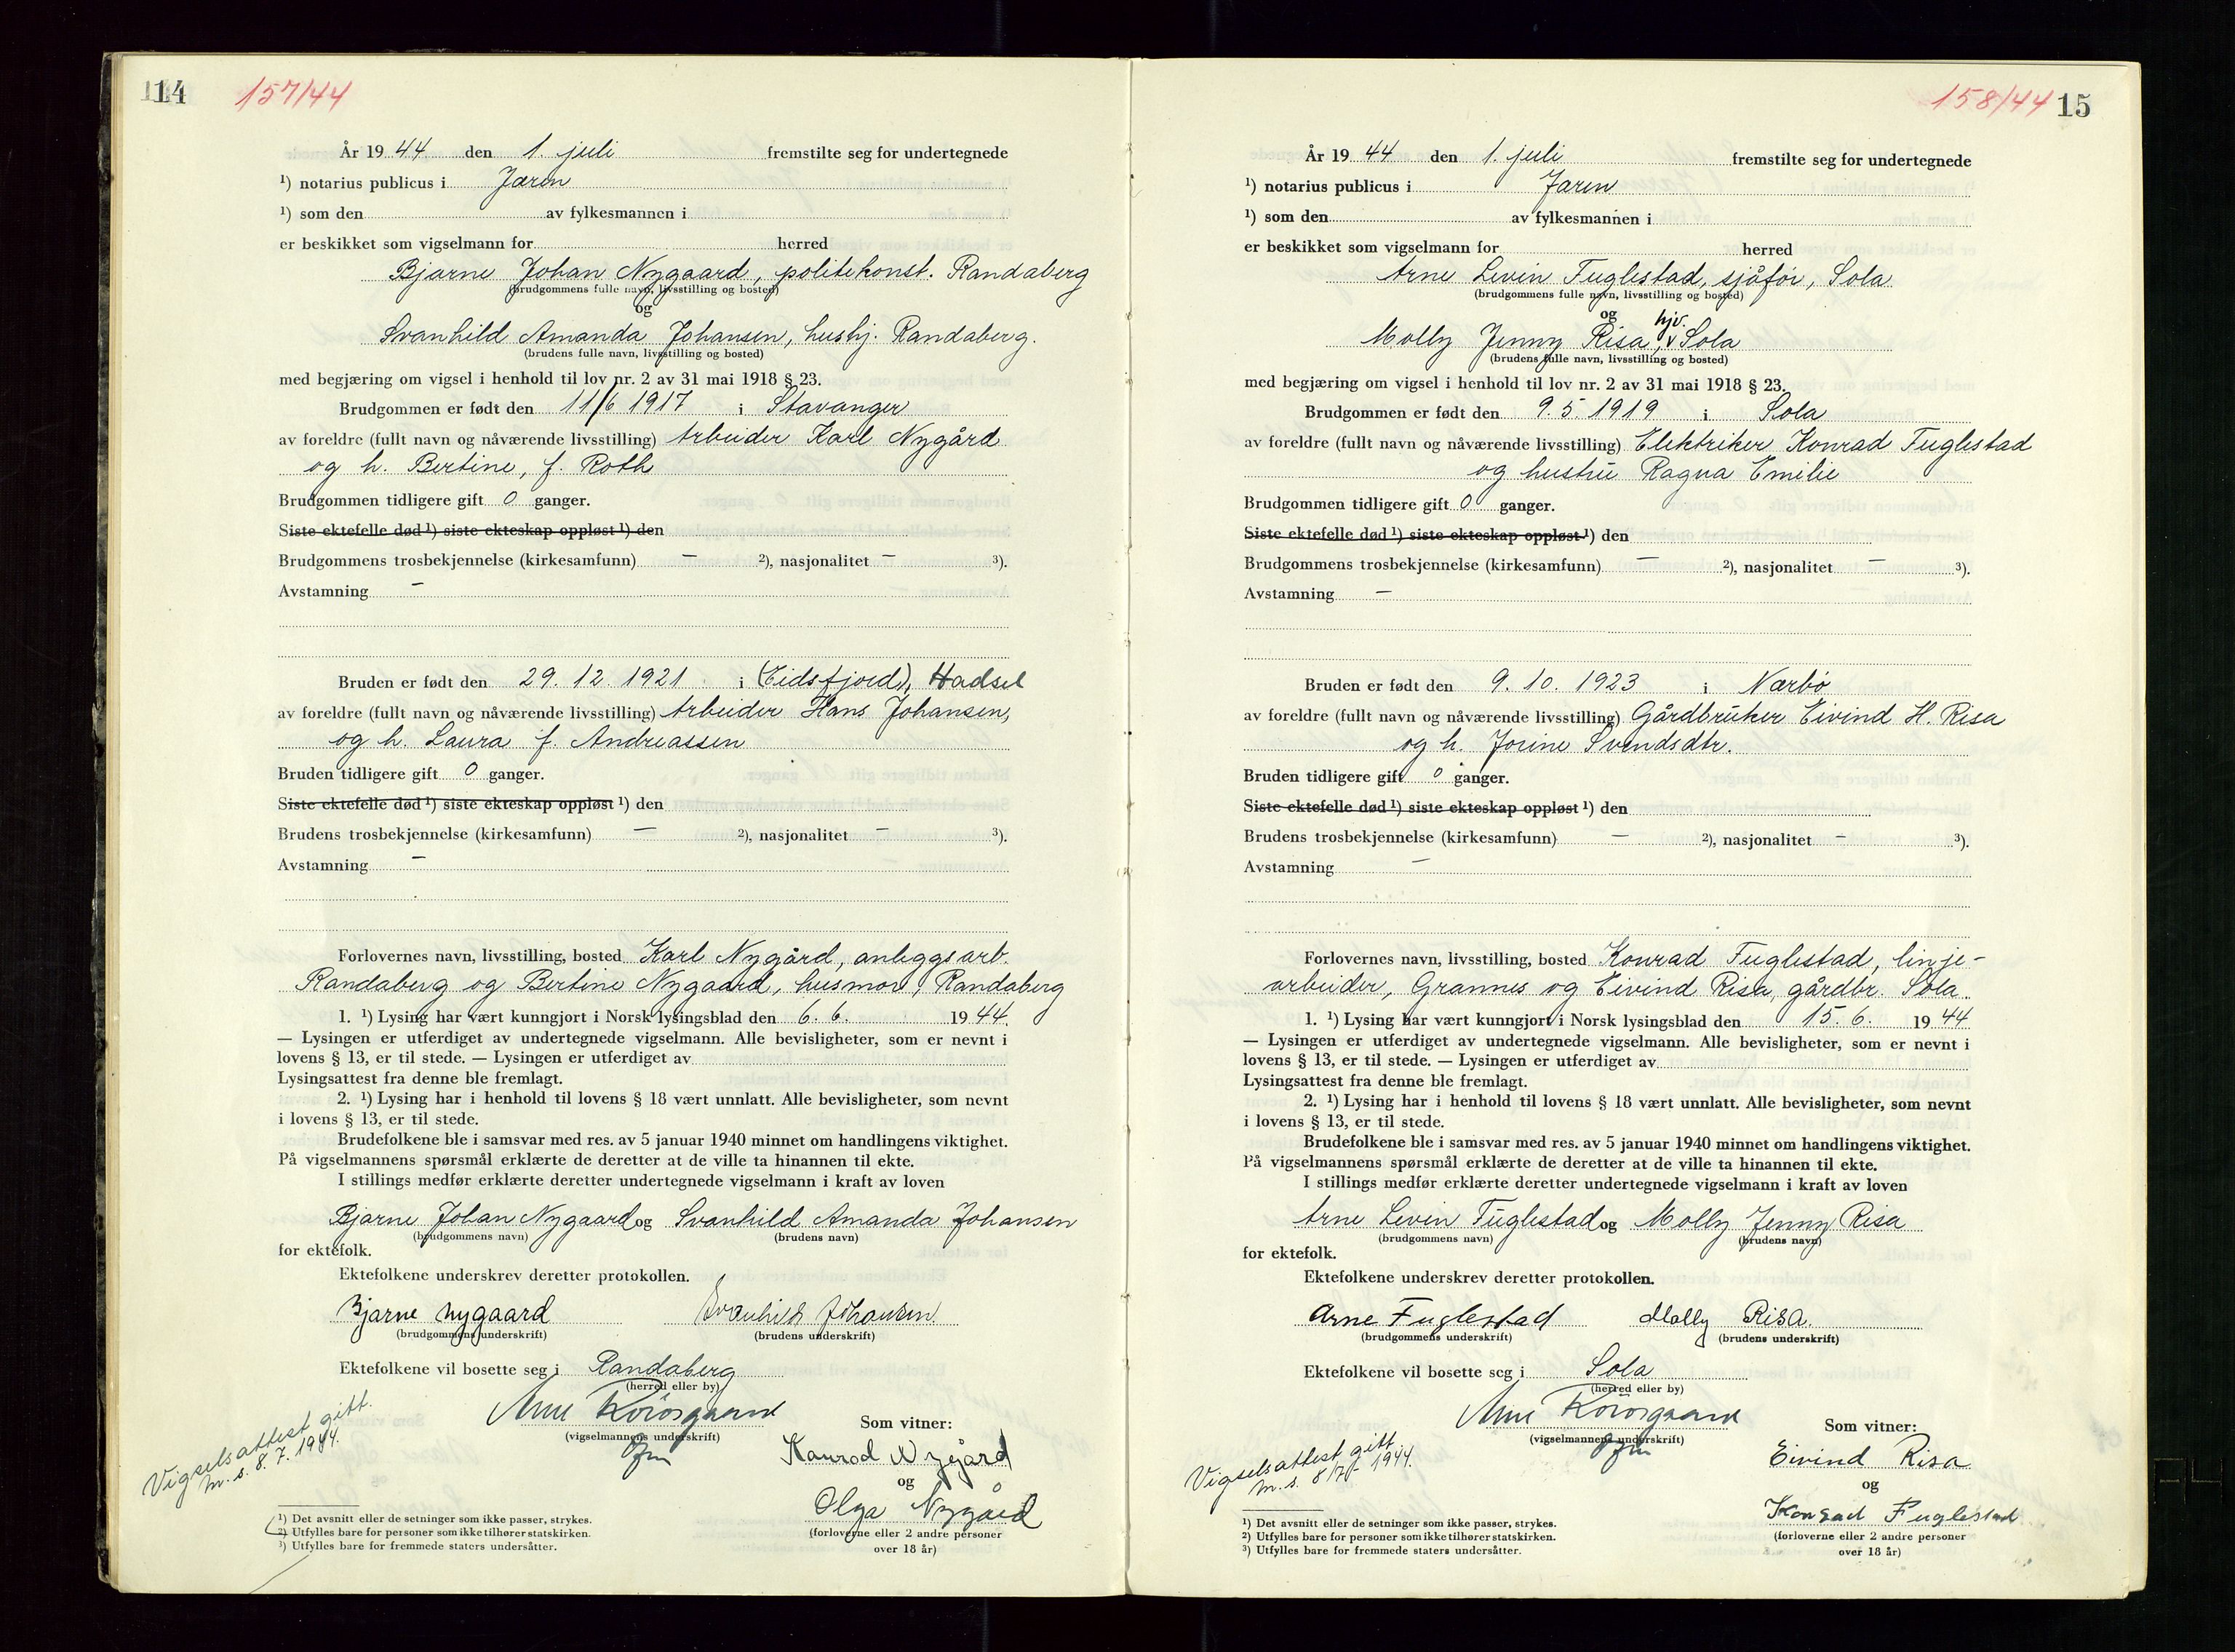 14 157/44
År 1944 den 1. juli fremstilte seg for undertegnede
¹) notarius publicus i Jæren
¹) som den av fylkesmannen i
er beskikket som vigselmann for herred
Bjarne Johan Nygaard, politikonst. Randaberg
(brudgommens fulle navn, livsstilling og bosted)
og
Svanhild Amanda Johansen, hushj. Randaberg.
(brudens fulle navn, livsstilling og bosted)
med begjæring om vigsel i henhold til lov nr. 2 av 31 mai 1918 § 23.
Brudgommen er født den 11/6 1917 i Stavanger
av foreldre (fullt navn og nåværende livsstilling) Arbeider Karl Nygård
og h. Bertine, f. Roth
Brudgommen tidligere gift 0 ganger.
Siste ektefelle død ¹) siste ekteskap oppløst ¹) den
Brudgommens trosbekjennelse (kirkesamfunn) — ²), nasjonalitet — ³).
Avstamning —
Bruden er født den 29. 12. 1921 i (Eidsfjord), Hadsel
av foreldre (fullt navn og nåværende livsstilling) Arbeider Hans Johansen,
og h. Laura f. Andreassen
Bruden tidligere gift 0 ganger.
Siste ektefelle død ¹) siste ekteskap oppløst ¹) den
Brudens trosbekjennelse (kirkesamfunn) — ²), nasjonalitet — ³).
Avstamning —
Forlovernes navn, livsstilling, bosted Karl Nygård, anleggsarb.
Randaberg og Bertine Nygaard, husmor, Randaberg
1. ¹) Lysing har vært kunngjort i Norsk lysingsblad den 6. 6. 1944.
— Lysingen er utferdiget av undertegnede vigselmann. Alle bevisligheter, som er nevnt i
lovens § 13, er til stede. — Lysingen er utferdiget av
Lysingsattest fra denne ble fremlagt.
2. ¹) Lysing har i henhold til lovens § 18 vært unnlatt. Alle bevisligheter, som nevnt
i lovens § 13, er til stede.
Brudefolkene ble i samsvar med res. av 5 januar 1940 minnet om handlingens viktighet.
På vigselmannens spørsmål erklærte de deretter at de ville ta hinannen til ekte.
I stillings medfør erklærte deretter undertegnede vigselmann i kraft av loven
Bjarne Johan Nygaard og Svanhild Amanda Johansen
(brudgommens navn) (brudens navn)
for ektefolk.
Ektefolkene underskrev deretter protokollen.
Bjarne Nygaard Svanhild Johansen
(brudgommens underskrift) (brudens underskrift)
Ektefolkene vil bosette seg i Randaberg
(herred eller by)
Som vitner:
(vigselmannens underskrift)
Vigselsattest gitt.
m. s. 8. 7. 1944.
Konrad Nygård
og
Olga Nygård
(forloverne eller 2 andre personer
over 18 år)
¹) Det avsnitt eller de setninger som ikke passer, strykes.
²) Utfylles bare for personer som ikke tilhører statskirken.
³) Utfylles bare for fremmede staters undersåtter.
158/44 15
År 1944 den 1. juli fremstilte seg for undertegnede
¹) notarius publicus i Jæren
¹) som den av fylkesmannen i
er beskikket som vigselmann for herred
Arne Levin Fuglestad, sjåfør, Sola
(brudgommens fulle navn, livsstilling og bosted)
og hjv.
Molly Jenny Risa, Sola
(brudens fulle navn, livsstilling og bosted)
med begjæring om vigsel i henhold til lov nr. 2 av 31 mai 1918 § 23.
Brudgommen er født den 9. 5. 1919 i Sola
av foreldre (fullt navn og nåværende livsstilling) Elektriker Konrad Fuglestad
og hustru Ragna Emilie
Brudgommen tidligere gift 0 ganger.
Siste ektefelle død ¹) siste ekteskap oppløst ¹) den
Brudgommens trosbekjennelse (kirkesamfunn) — ²), nasjonalitet — ³).
Avstamning —
Bruden er født den 9. 10. 1923 i Nærbø
av foreldre (fullt navn og nåværende livsstilling) Gårdbruker Eivind H. Risa
og h. Jorine Svendsdtr.
Bruden tidligere gift 0 ganger.
Siste ektefelle død ¹) siste ekteskap oppløst ¹) den
Brudens trosbekjennelse (kirkesamfunn) — ²), nasjonalitet — ³).
Avstamning —
Forlovernes navn, livsstilling, bosted Konrad Fuglestad, linje-
arbeider, Grannes og Eivind Risa, gårdbr. Sola.
1. ¹) Lysing har vært kunngjort i Norsk lysingsblad den 15. 6. 1944
— Lysingen er utferdiget av undertegnede vigselmann. Alle bevisligheter, som er nevnt i
lovens § 13, er til stede. — Lysingen er utferdiget av
Lysingsattest fra denne ble fremlagt.
2. ¹) Lysing har i henhold til lovens § 18 vært unnlatt. Alle bevisligheter, som nevnt
i lovens § 13, er til stede.
Brudefolkene ble i samsvar med res. av 5 januar 1940 minnet om handlingens viktighet.
På vigselmannens spørsmål erklærte de deretter at de ville ta hinannen til ekte.
I stillings medfør erklærte deretter undertegnede vigselmann i kraft av loven
Arne Levin Fuglestad og Molly Jenny Risa
(brudgommens navn) (brudens navn)
for ektefolk.
Ektefolkene underskrev deretter protokollen.
Arne Fuglestad Molly Risa.
(brudgommens underskrift) (brudens underskrift)
Ektefolkene vil bosette seg i Sola
(herred eller by)
Som vitner:
(vigselmannens underskrift)
Vigselsattest gitt
m. s. 8/7 - 1944.
Eivind Risa
og
Konrad Fuglestad
(forloverne eller 2 andre personer
over 18 år)
¹) Det avsnitt eller de setninger som ikke passer, strykes.
²) Utfylles bare for personer som ikke tilhører statskirken.
³) Utfylles bare for fremmede staters undersåtter.